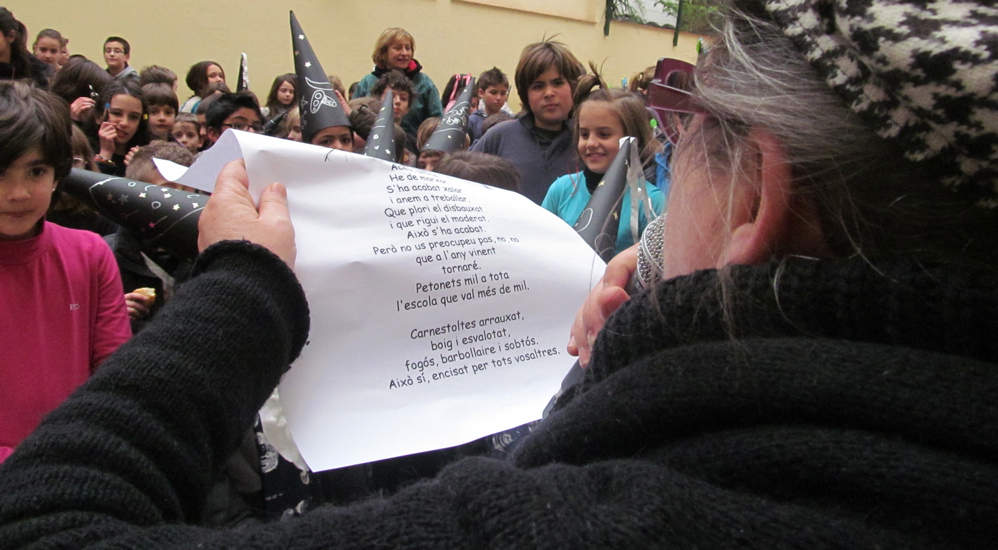 He de
S'ha acabat xalar
i anem a treballar.
Que plori el disbauxat
i que rigui el moderat.
Això s'ha acabat.
Però no us preocupeu pas, no, no
que a l'any vinent
tornaré.
Petonets mil a tota
l'escola que val més de mil.
Carnestoltes arrauxat,
boig i esvalotat,
fogós, barbollaire i sobtós.
Això sí, encisat per tots vosaltres.